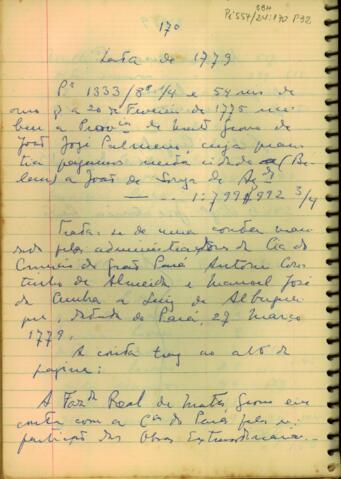 SBH
Pi 554/ P92
170
Data de 1779
Pª 1333/8ªs 1/4 e 54 reis de
ouro q a 20 de Fevereiro de 1775 rece
beu a Provcia de Matto Grosso de
João José Palmeiro cuja quan
tia pagamos nesta cidade (Be
lem) a João de Souza de
1:799$992 3/4
Trata-se de uma conta man
dada pelos administradores da Cia do
Comércio do Grão Pará Antonio Cou
tinho de Almeida e Manoel José
da Cunha a Luiz de Albuquer
que, datada do Pará, 27 março
1779.
A conta traz no alto da
página:
A Fazda Real de Matto Grosso em
conta com a Cia do Pará pela re
partição das Obras Extraordinarias...